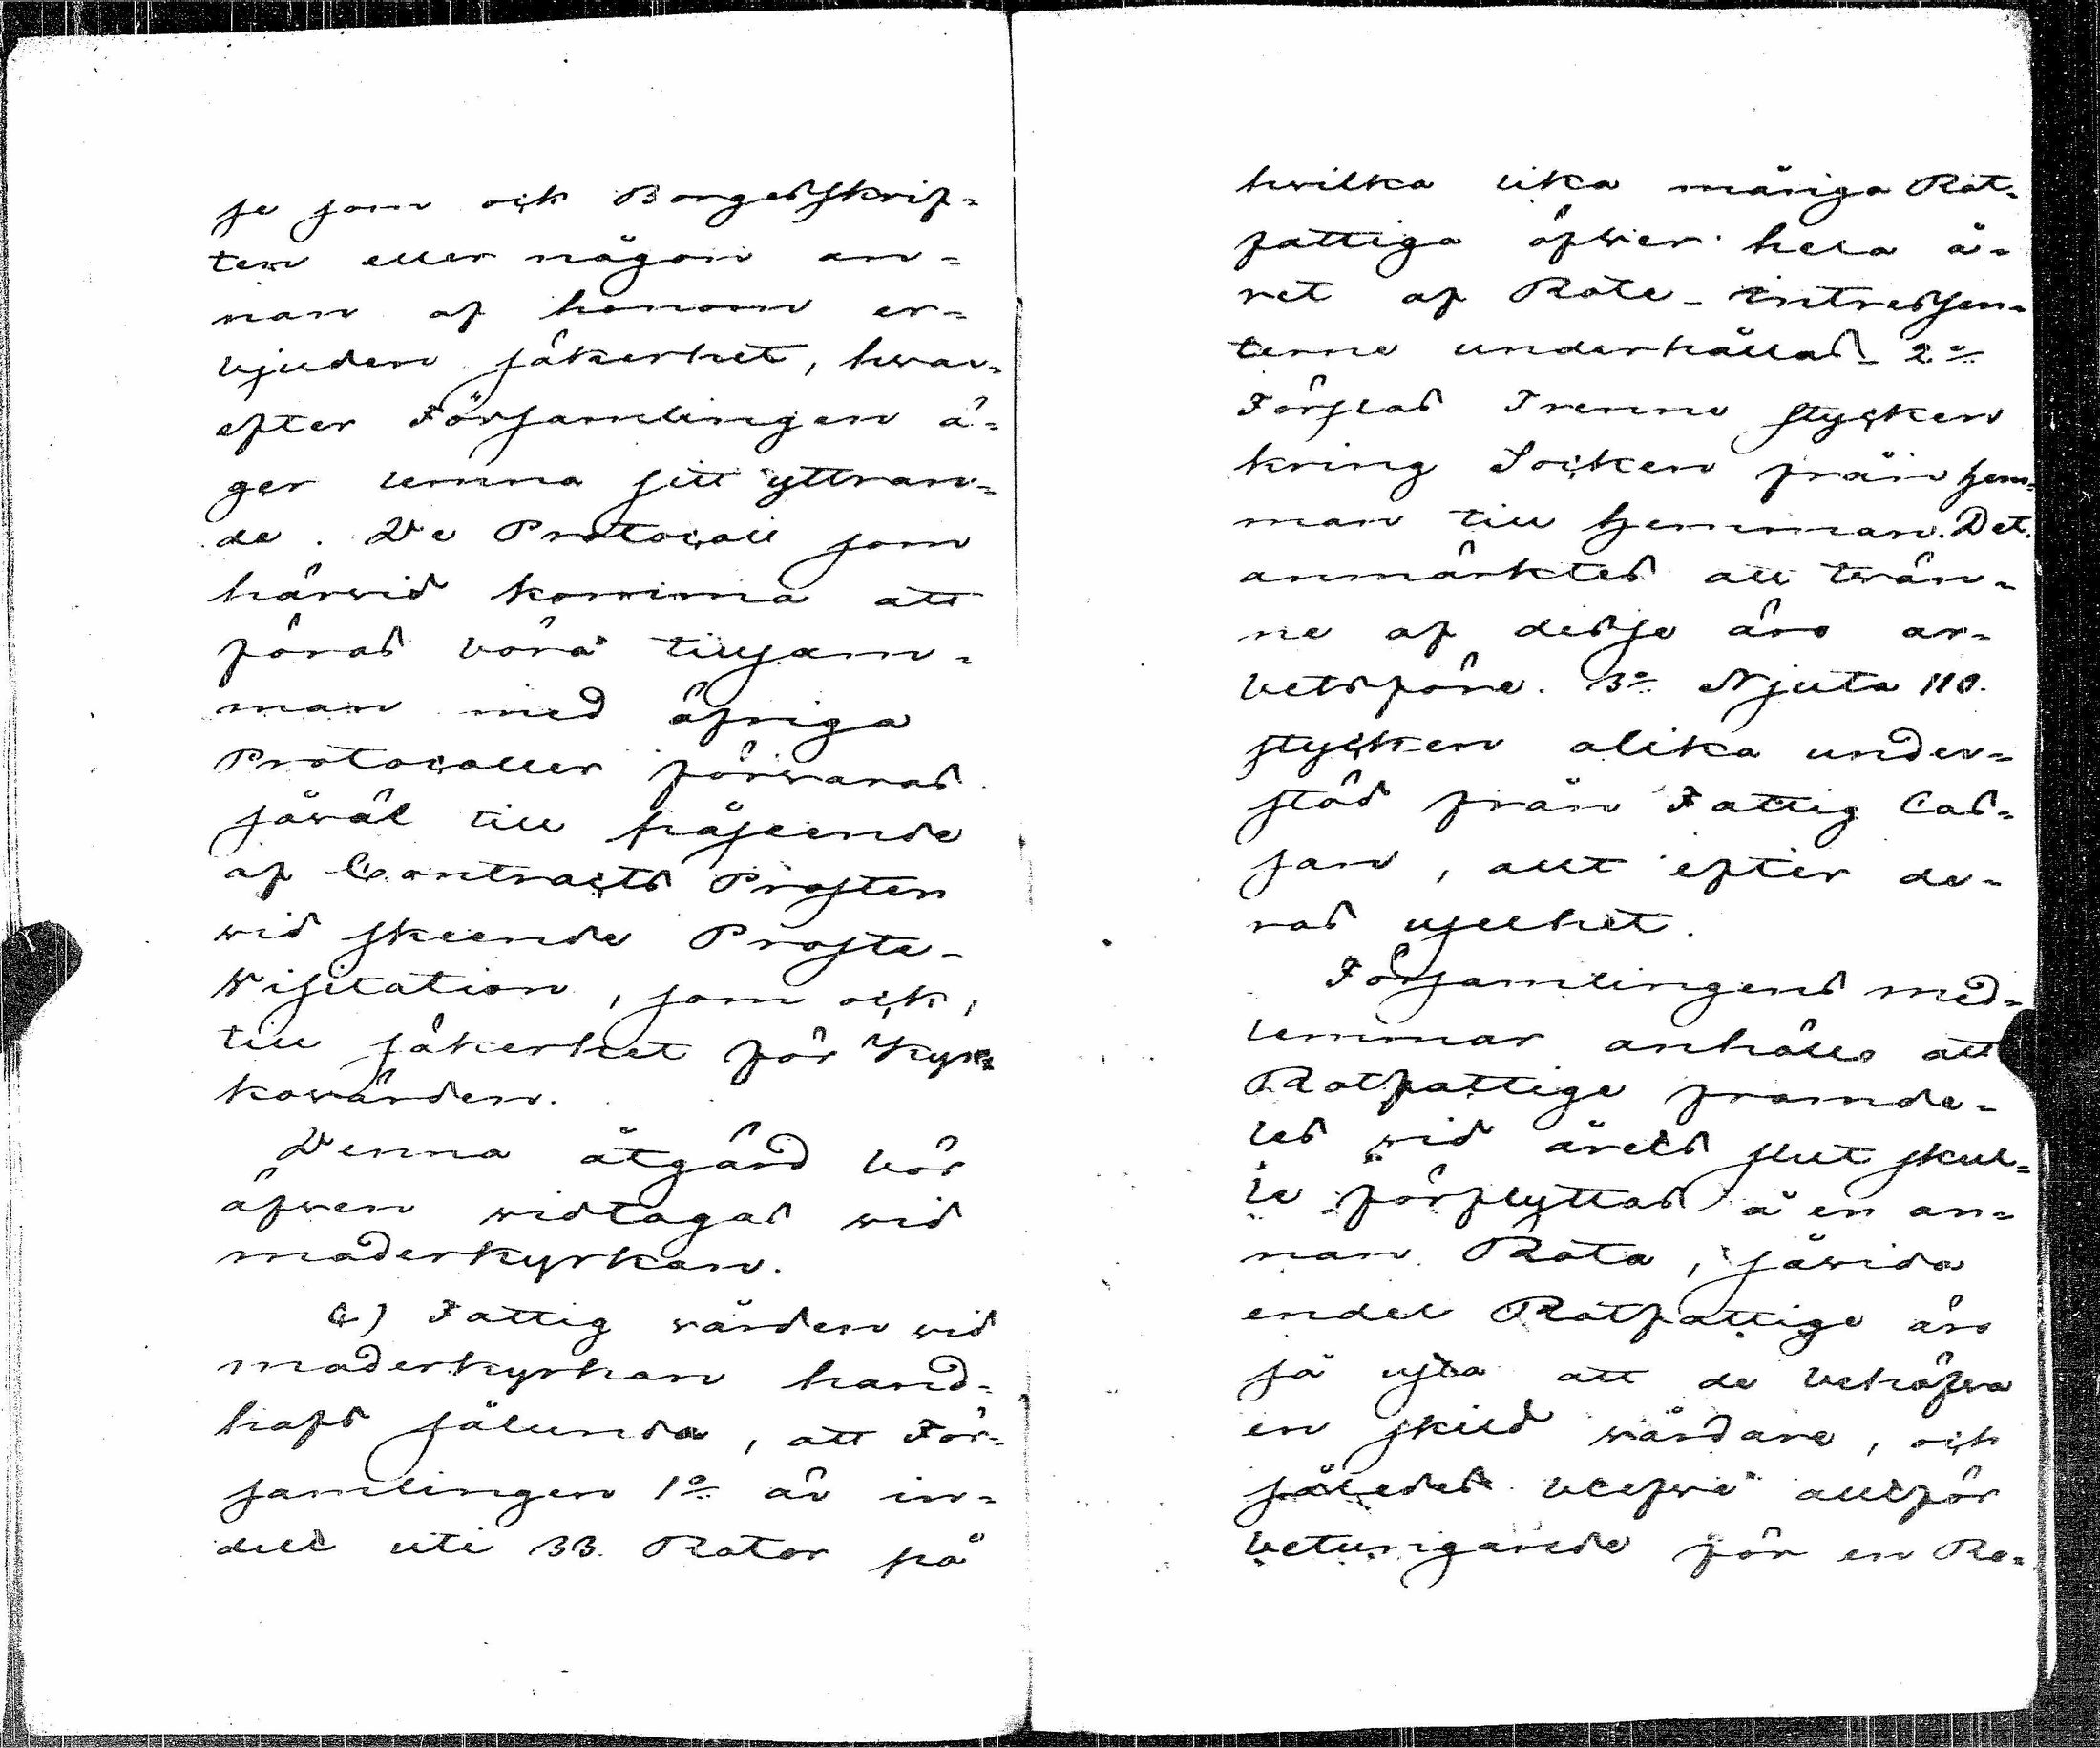 se som ock Borgesskrif=
ten eller någon an=
nan af honom er=
bjuden säkerhet, hwar=
efter Församlingen ä=
ger lemna sitt yttran=
de. De Protocoll som
härwid komma att
föras böra tillsam=
man med öfriga
Protocoller förwaras
såwäl till påseende
af Contracts Prosten
wid skeende Proste-
Wisitation, som ock,
till säkerhet för Kyr=
kowärden.
Denna åtgärd bör
äfwen widtagas wid
moderkyrkan.
4) Fattig wården wid
moderkyrkan hand=
hafs sålunda, att För=
samlingen 1o är in=
delt uti 33. Rotor på
hwilka lika månge Rot=
fattiga öfwer hela å=
ret af Rote-intressen=
terne underhållas. 2o
Förslas Trenne stycken
kring Socken från hem=
man till hemman. Det
anmärktes att twän=
ne af desse äro ar=
betsföre. 3o Njuta 110.
stycken olika under=
stöd från Fattig Cas=
san, allt efter de=
ras uselhet.
Församlingens med=
lemmar anhöllo att
Rotfattige framde=
les wid årets slut skul=
le förflyttas å en an=
nan Rota, såwida
endel Rotfattige äro
så usla att de behöfwa
en skild wårdare, och
således blefwe alltför
betungande för en Ro=